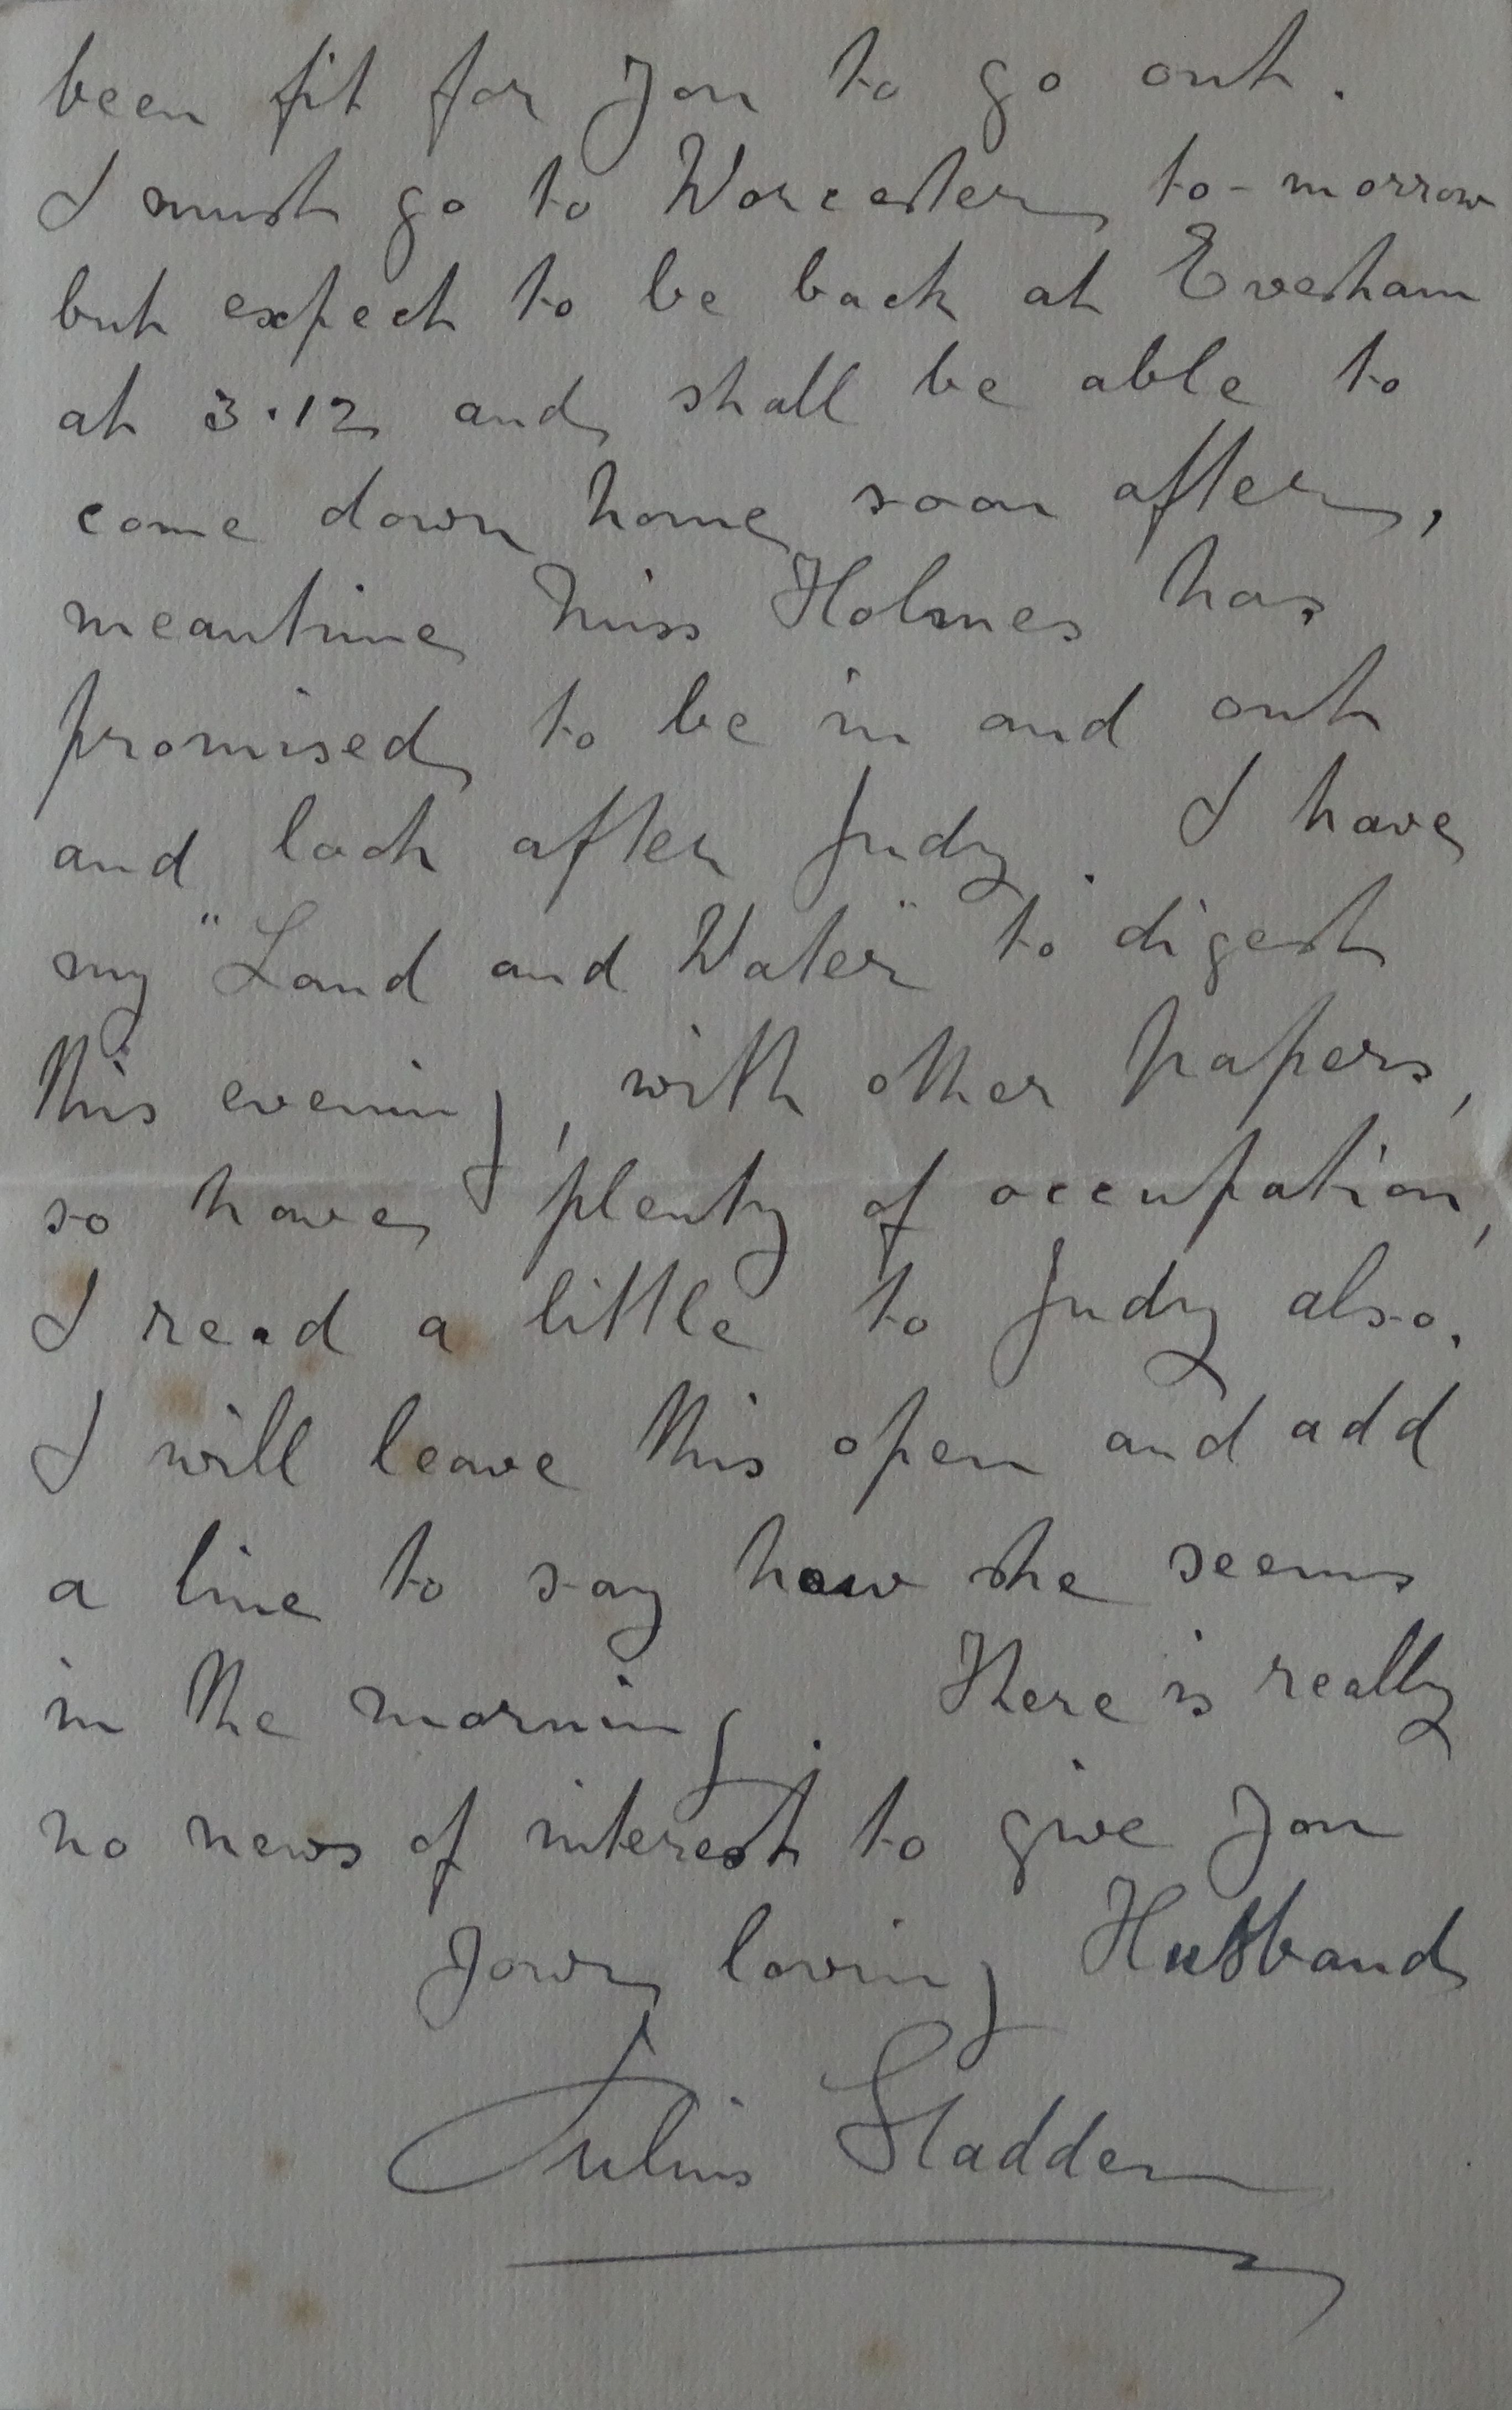 been fit for you to go out.
I must go to Worcester to-morrow
but expect to be back at Evesham
at 3.12 and shall be able to
come down home soon after,
meantime Miss Holmes has
promised to be in and out
and look after Judy. I have
my "Land and Water" to digest
this evening, with other papers,
so have plenty of occupation,
I read a little to Judy also.
I will leave this open and add
a line to say how she seems
in the morning. There is really
no news of interest to give you
Your loving Husband
Julius Sladden